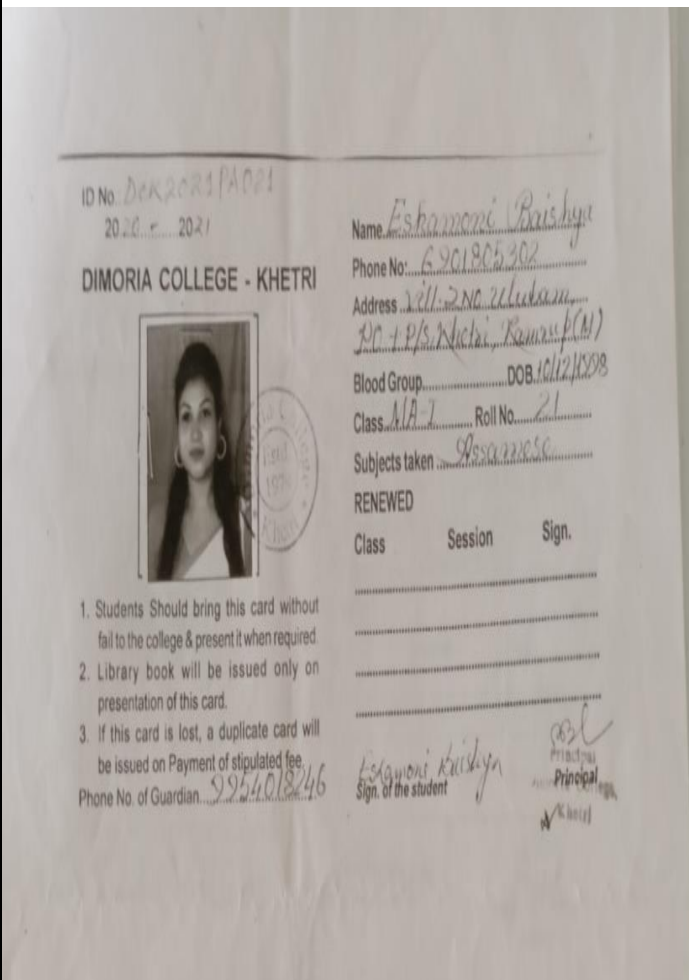 ID No. DCK2021PA021
2020 - 2021
DIMORIA COLLEGE - KHETRI
Dimoria College
Estd.
1979
Khetri
1. Students Should bring this card without
fail to the college & present it when required.
2. Library book will be issued only on
presentation of this card.
3. If this card is lost, a duplicate card will
be issued on Payment of stipulated fee.
Phone No. of Guardian 9954018246
Name Eskamoni Baishya
Phone No: 6901805302
Address Vill-2No Ulutam,
PO + P/S. Khetri, Kamrup (M)
Blood Group DOB 10/12/1998
Class MA-I Roll No. 21
Subjects taken Assamese
RENEWED
Class Session Sign.
Eskamoni Baishya
Sign. of the student
Principal
Principal
Khetri